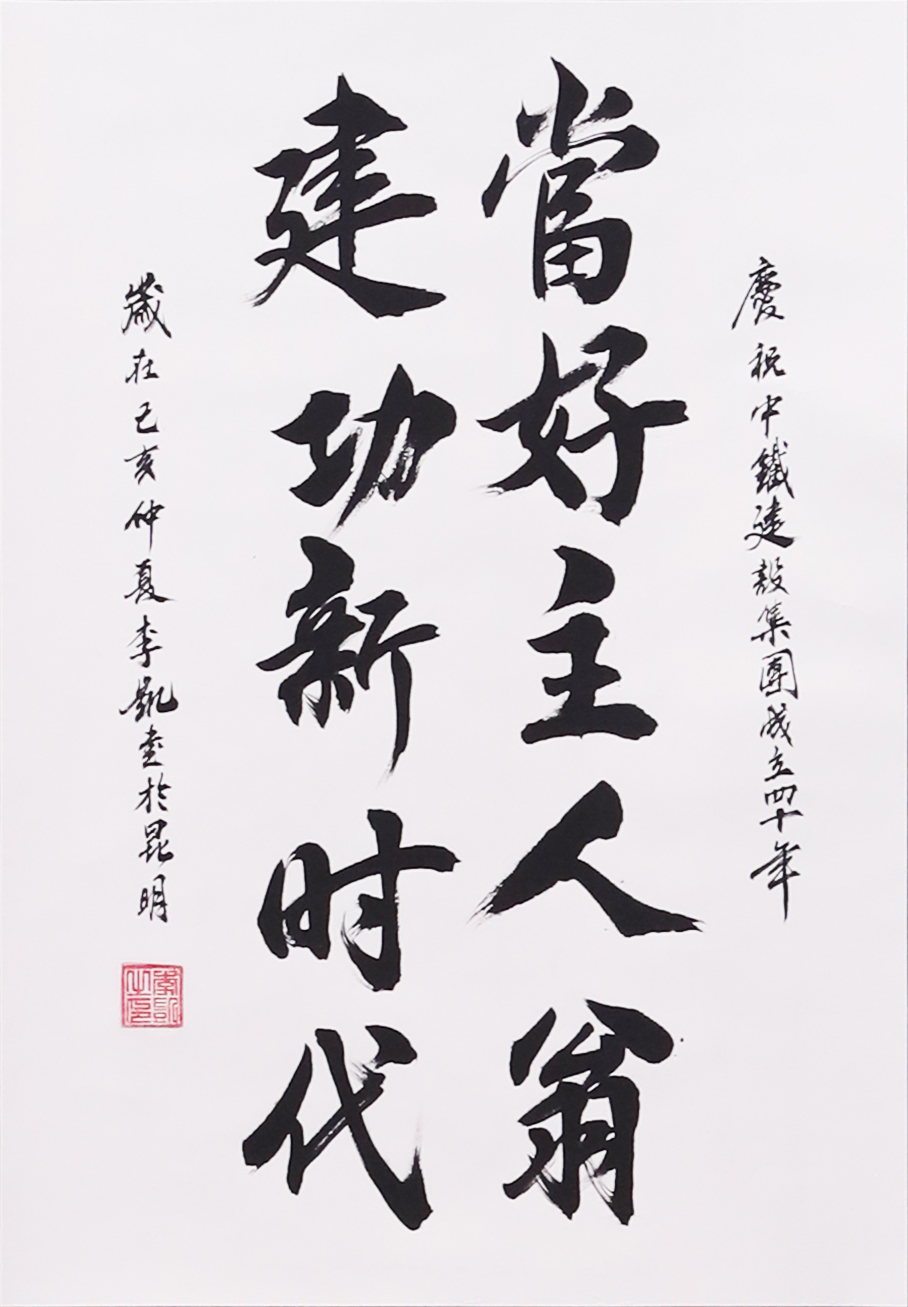 慶祝中鐵建設集團成立四十年
當好主人翁
建功新时代
歲在己亥仲夏李凱書於昆明
李凱之印